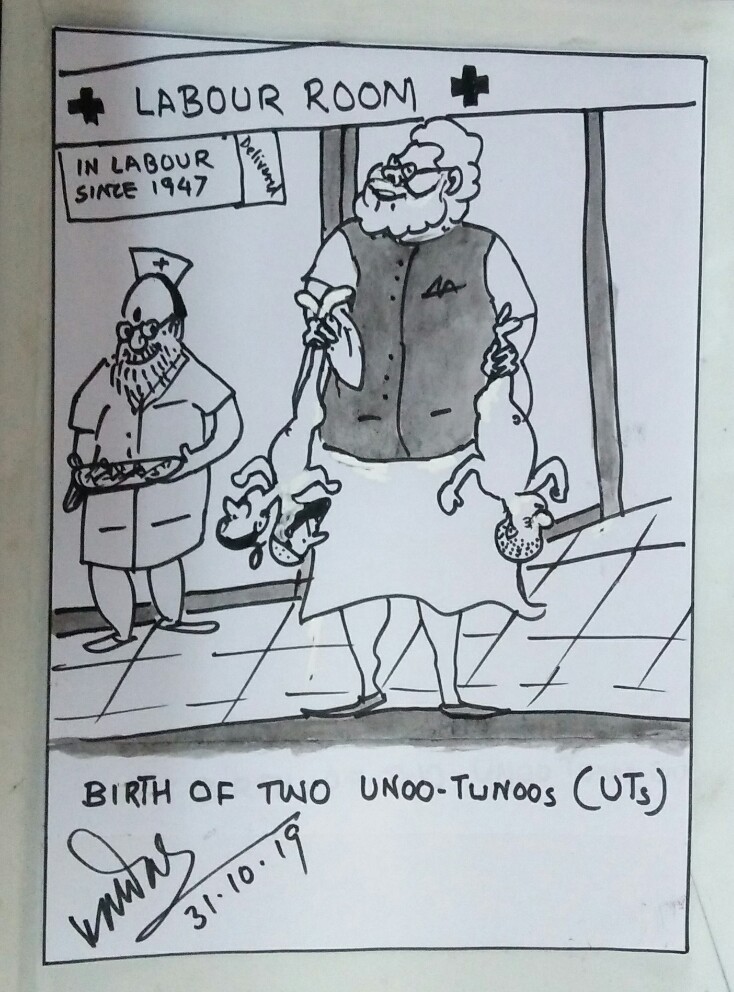 LABOUR ROOM
IN LABOUR
SINCE 1947
Delivered
BIRTH OF TWO UNOO-TUNOOS (UTs)
31.10.19